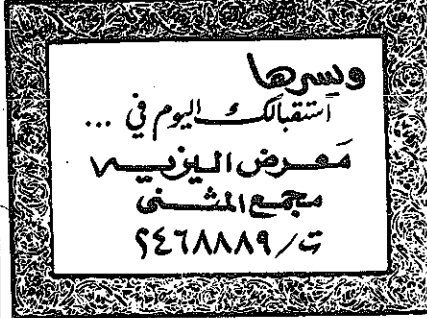 ويسرها
استقبالك اليوم في ...
معرض اليزيه
مجمع المثنى
ت/٢٤٦٨٨٨٩